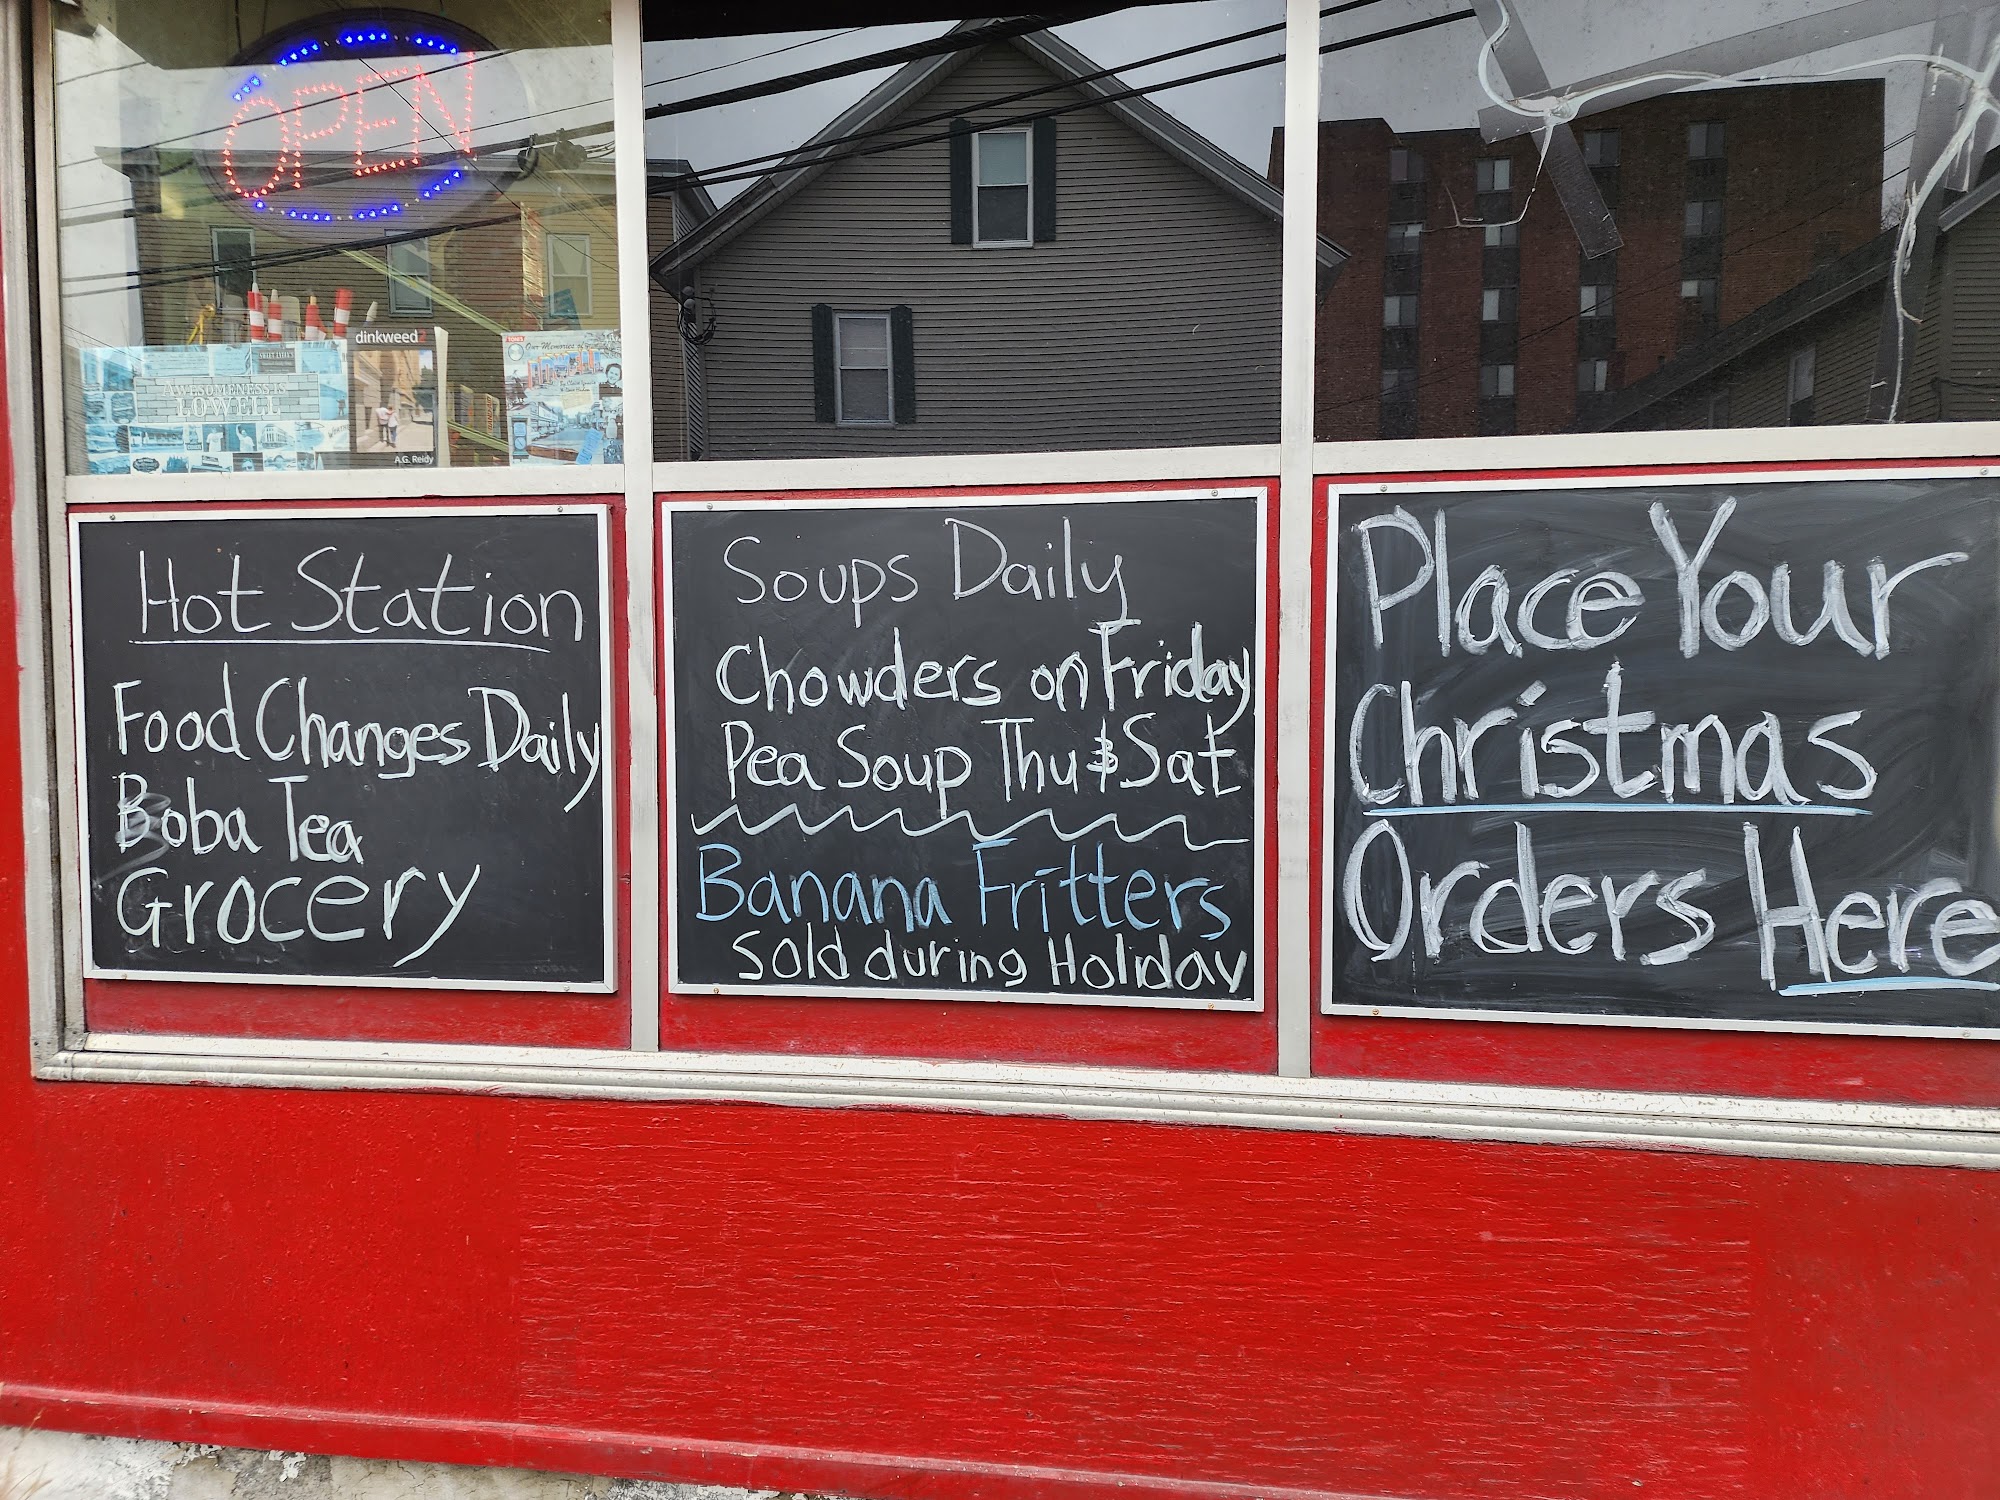 OPEN
AWESOMENESS IS
LOWELL
dinkweed2
A.G. Reidy
Our Memories of
Hot Station
Food Changes Daily
Boba Tea
Grocery
Soups Daily
Chowders on Friday
Pea Soup Thu & Sat
Banana Fritters
Sold during Holiday
Place Your
Christmas
Orders Here